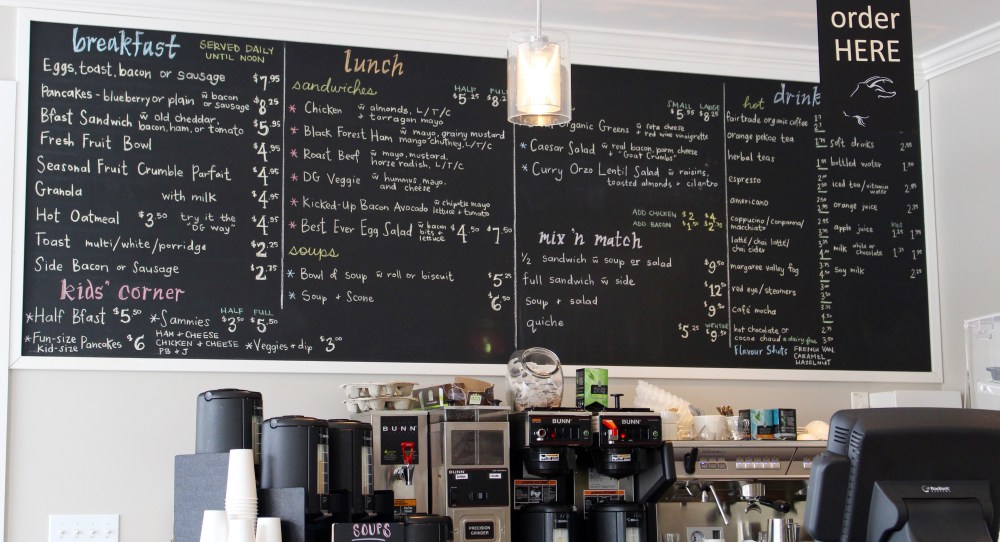 breakfast SERVED DAILY
UNTIL NOON
Eggs, toast, bacon or sausage $7.95
Pancakes - blueberry or plain w bacon
or sausage $8.25
Bfast Sandwich w old cheddar,
bacon, ham, or tomato $5.95
Fresh Fruit Bowl $4.95
Seasonal Fruit Crumble Parfait $4.95
Granola with milk $4.95
Hot Oatmeal $3.50 try it the
"DG way" $4.95
Toast multi/white/porridge $2.25
Side Bacon or Sausage $2.75
kids' corner
*Half Bfast $5.50 *Sammies HALF $3.50 FULL $5.50
HAM + CHEESE
CHICKEN + CHEESE
PB + J
*Fun-size
Kid-size Pancakes $6
*Veggies + dip $3.00
lunch
sandwiches HALF $5.25 FULL $8.2
* Chicken w almonds, L/T/C
+ tarragon mayo
* Black Forest Ham w mayo, grainy mustard
mango chutney, L/T/C
* Roast Beef w mayo, mustard,
horse radish, L/T/C
* DG Veggie w hummus, mayo,
and cheese
* Kicked-Up Bacon Avocado w chipotle mayo
lettuce + tomato
* Best Ever Egg Salad w bacon
bits +
lettuce $4.50 $7.50
soups
* Bowl of Soup w roll or biscuit $5.25
* Soup + Scone $6.50
SMALL $5.95 LARGE $8.25
Organic Greens w feta cheese
+ red wine vinaigrette
* Caesar Salad w real bacon, parm cheese
+ "Goat Crumbs"
* Curry Orzo Lentil Salad w raisins,
toasted almonds + cilantro
ADD CHICKEN $2 $4
ADD BACON $1.50 $2.75
mix 'n match
1/2 sandwich w soup or salad $9.50
full sandwich w side $12
soup + salad $9.50
quiche $5.25 $9.50
hot drink
fair trade organic coffee
orange pekoe tea
herbal teas
espresso
americano
cappucino/conpanna/
macchiato
latté/chai latté/
chai cider
margaree valley fog
red eye/steamers
café mocha
hot chocolate or
cocoa chaud a dairy free
Flavour Shots FRENCH VAN.
CARAMEL
HAZELNUT
soft drinks
bottled water
iced tea/vitamin
water
orange juice
apple juice
milk white or
chocolate
soy milk
order
HERE
BUNN
BUNN
PRECISION
GRINDER
SOUPS